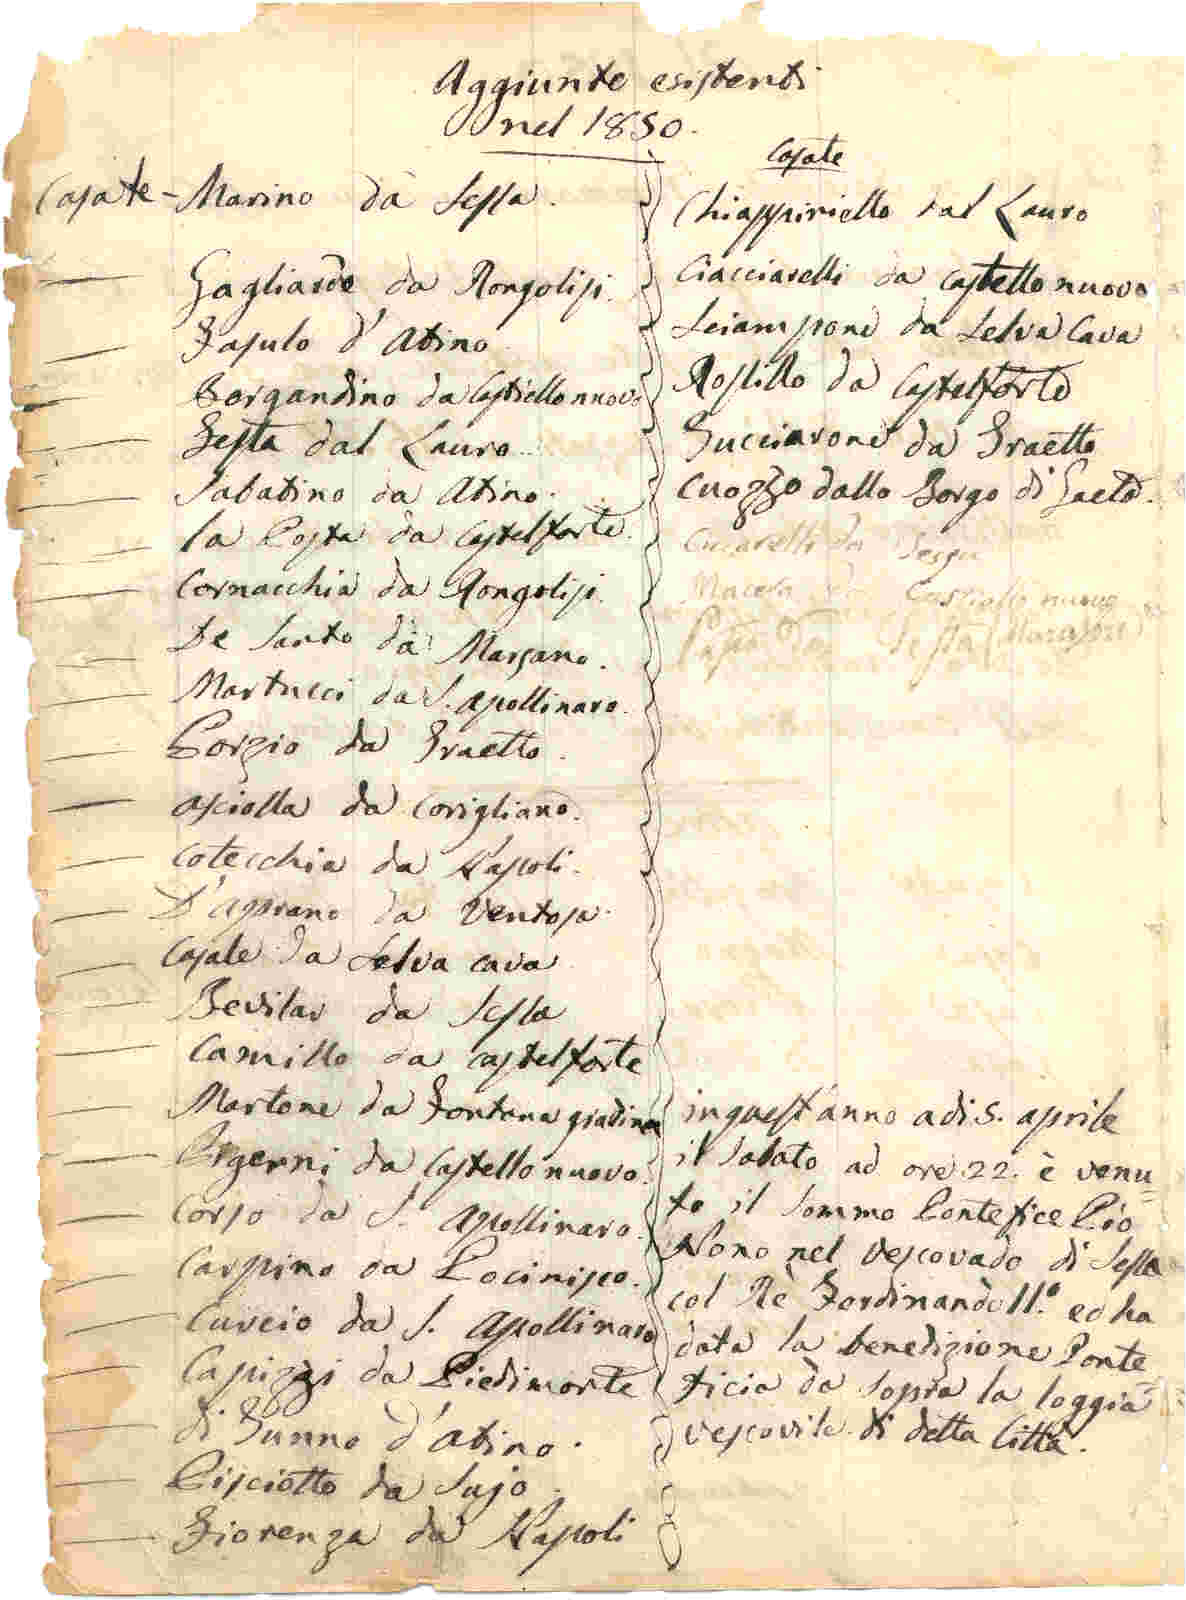 Aggiunte esistenti
nel 1850.
Casate - Marino da Sessa.
Gagliarde da Rongolisi.
Fasulo d'Atino
Borgandino da Castiello nuovo
Testa dal Lauro
Sabatino da Atino.
la Posta da Castelforte.
Cornacchia da Rongolisi.
De Santo da Marzano.
Martucci da S. Apollinaro.
Porzio da Traetto.
Asciolla da Corigliano.
Cotecchia da Napoli.
D'Aprano da Ventosa.
Casale da Selva cava
Bevilar da Sessa
Camillo da Castelforte
Martone da Fontana
da Castello nuovo.
Corso da S. Apollinaro.
Carpino da Pocinisco.
Curcio da S. Apollinaro
Capizzi da Piedimonte
di Tunno d'Atino.
Pisciotto da Sujo.
Fiorenza da Napoli
Casate
Chiappiniello dal Lauro
Ciacciarelli da Castello nuovo
Sciampone da Selva Cava
Rosillo da Castelforte
Zucciarone da Traetto
Cuozzo dallo Borgo di Gaeta.
Ciccarelli da Sessa
Macera da Castiello nuovo
in quest'anno adi 5. aprile
il Sabato ad ore 22. è venu=
to il Sommo Pontefice Pio
Nono nel Vescovado di Sessa
col Rè Ferdinando II.° ed ha
data la benedizione Ponte
ficia da sopra la loggia
vescovile di detta Città.